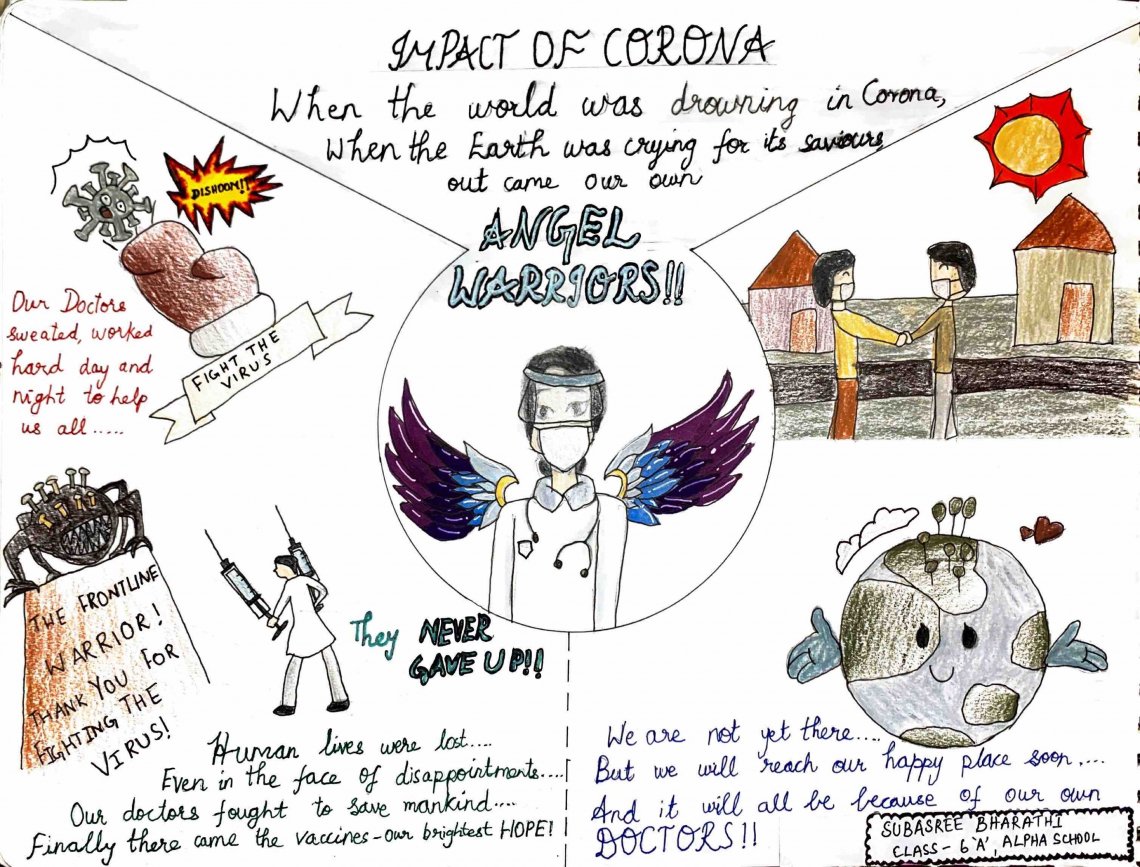 IMPACT OF CORONA
When the world was drowning in Corona,
When the Earth was crying for its saviours
out came our own
ANGEL
WARRIORS!!
DISHOOM!!
Our Doctors
sweated, worked
hard day and
night to help
us all.....
FIGHT THE
VIRUS
THE FRONTLINE
WARRIOR!
THANK YOU FOR
FIGHTING THE
VIRUS!
They NEVER
GAVE UP!!
Human lives were lost....
Even in the face of disappointments....
Our doctors fought to save mankind....
Finally there came the vaccines - our brightest HOPE!
We are not yet there....
But we will reach our happy place soon,...
And it will all be because of our own
DOCTORS!!
SUBASREE BHARATHI
CLASS - 6 'A', ALPHA SCHOOL